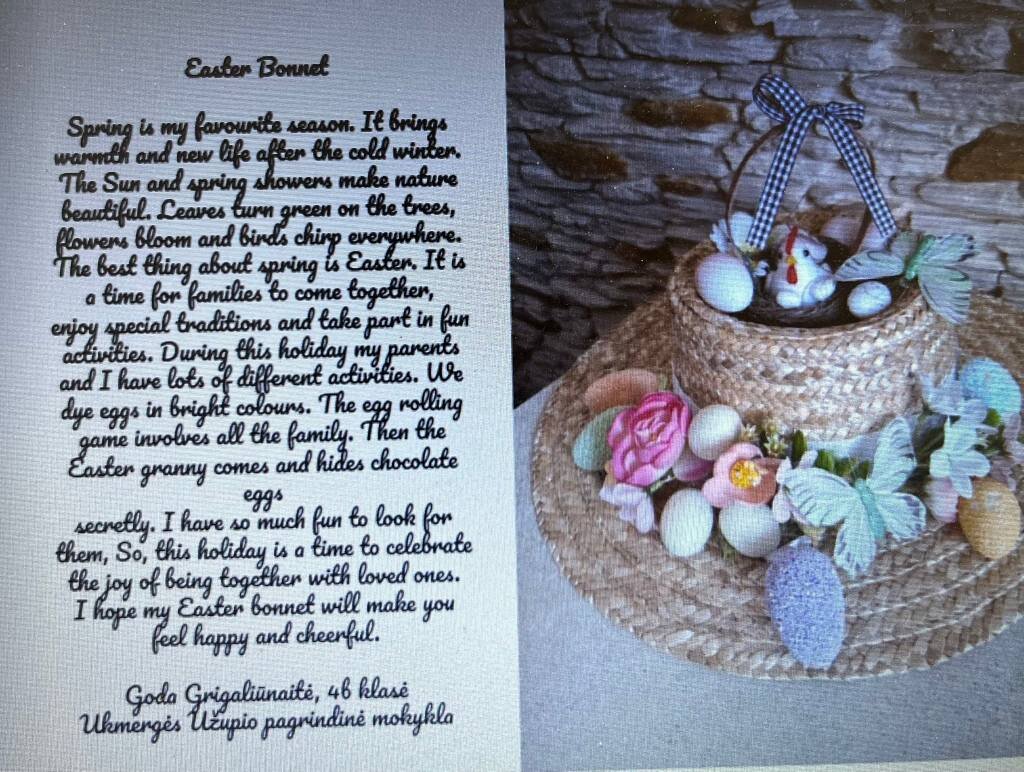 Easter Bonnet
Spring is my favourite season. It brings
warmth and new life after the cold winter.
The Sun and spring showers make nature
beautiful. Leaves turn green on the trees,
flowers bloom and birds chirp everywhere.
The best thing about spring is Easter. It is
a time for families to come together,
enjoy special traditions and take part in fun
activities. During this holiday my parents
and I have lots of different activities. We
dye eggs in bright colours. The egg rolling
game involves all the family. Then the
Easter granny comes and hides chocolate
eggs
secretly. I have so much fun to look for
them, So, this holiday is a time to celebrate
the joy of being together with loved ones.
I hope my Easter bonnet will make you
feel happy and cheerful.
Goda Grigaliūnaitė, 4b klasė
Ukmergės Užupio pagrindinė mokykla